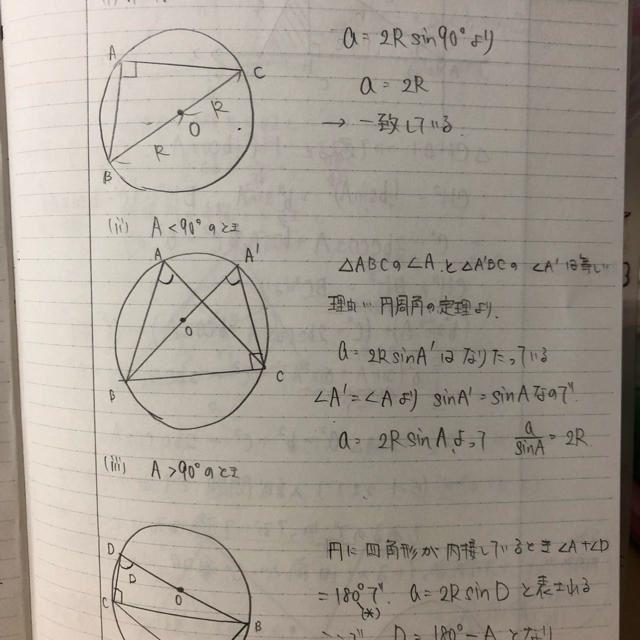 a = 2R sin90° より
a = 2R
→ 一致している.
A
C
R
O
R
B
(ii) A < 90° のとき
A
A'
O
B
C
△ABCの∠A と△A'BCの ∠A' は等しい
理由は 円周角の定理より.
a = 2R sinA' は なりたっている
∠A' = ∠A より sinA' = sinA なので
a = 2R sinA よって a/sinA = 2R
(iii) A > 90° のとき
D
D
O
C
B
円に 四角形が 内接しているとき ∠A+∠D
= 180° で a = 2R sin D と表される
(*)
D = 180° − A となり